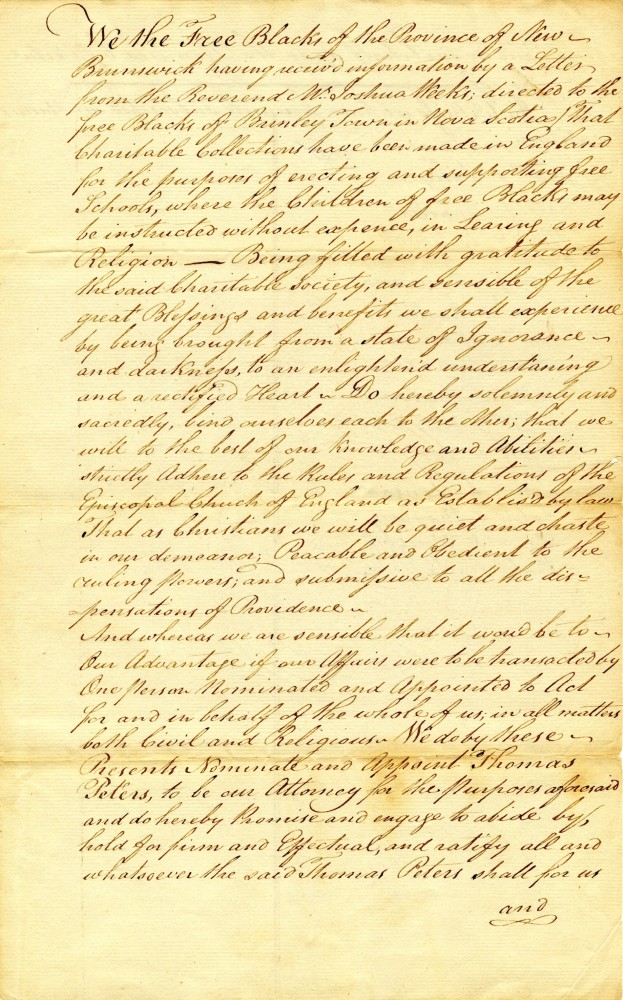 We the Free Blacks of the Province of New
Brunswick having receiv'd information by a Letter
from the Reverend Mr. Joshua Weeks; directed to the
free Blacks of Brinley Town in Nova Scotia, That
Charitable Collections have been made in England
for the purposes of erecting and supporting free
Schools, where the Children of free Blacks may
be instructed without expence, in Learing and
Religion — Being filled with gratitude to
the said Charitable society, and sensible of the
great Blessings and benefits we shall experience
by being brought from a state of Ignorance
and darkness, to an enlighten'd understaning
and a rectified Heart Do hereby solemnly and
sacredly, bind ourselves each to the other; that we
will to the best of our knowledge and Abilities
strictly Adhere to the Rules and Regulations of the
Episcopal Chuch of England as Establis'd by law
That as Christians we will be quiet and chaste
in our demeanor; Peacable and Obedient to the
ruling Powers; and submissive to all the dis=
=pensations of Providence
And whereas we are sensible that it wou'd be to
Our Advantage if our Affairs were to be transacted by
One Person Nominated and Appointed to Act
for and in behalf of the whole of us; in all matters
both Civil and Religious We do by these
Presents Nominate and Appoint Thomas
Peters, to be our Attorney for the Purposes aforesaid
and do hereby Promise and engage to abide by,
hold for firm and Effectual, and ratify all and
whatsoever the said Thomas Peters shall for us
and